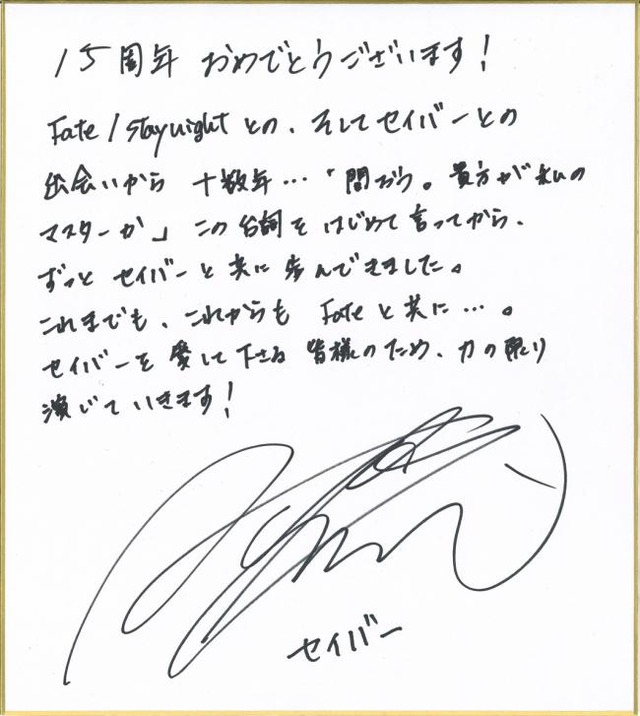 15周年 おめでとうございます!
Fate/staynightとの、そしてセイバーとの
出会いから 十数年…「問おう。貴方が私の
マスターか」この台詞をはじめて言ってから、
ずっと セイバーと共に歩んできました。
これまでも、これからも Fateと共に…。
セイバーを愛して下さる皆様のため、力の限り
演じていきます!
セイバー